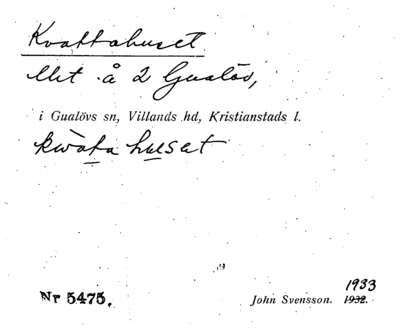 Kvattahuset
Mt å 2 Gualöv,
i Gualövs sn, Villands hd, Kristianstads l.
kwàta huset
1933
Nr 5475. John Svensson. 1932.